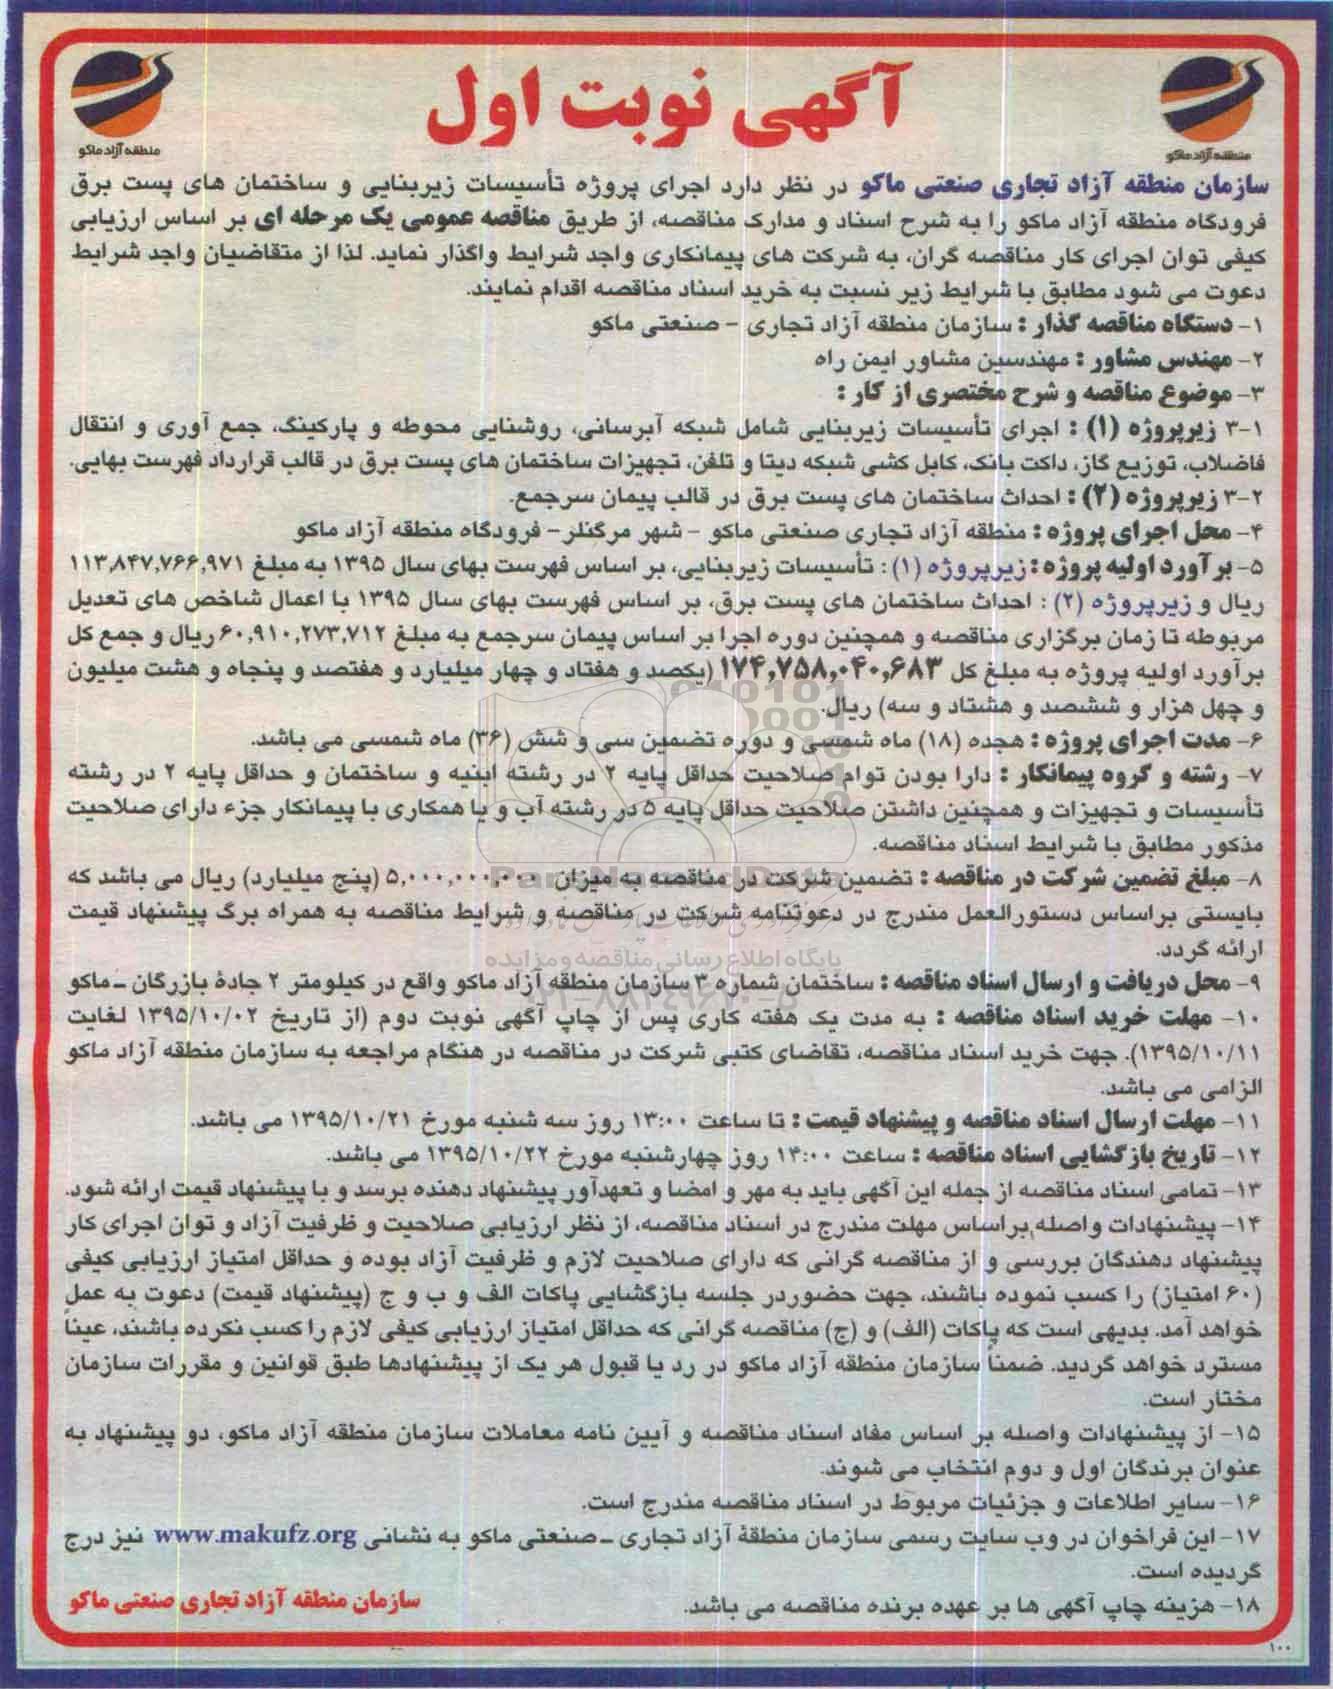 منطقه آزاد ماکو
منطقه آزاد ماکو
آگهی نوبت اول
سازمان منطقه آزاد تجاری صنعتی ماکو در نظر دارد اجرای پروژه تأسیسات زیربنایی و ساختمان های پست برق
فرودگاه منطقه آزاد ماکو را به شرح اسناد و مدارک مناقصه، از طریق مناقصه عمومی یک مرحله ای بر اساس ارزیابی
کیفی توان اجرای کار مناقصه گران، به شرکت های پیمانکاری واجد شرایط واگذار نماید. لذا از متقاضیان واجد شرایط
دعوت می شود مطابق با شرایط زیر نسبت به خرید اسناد مناقصه اقدام نمایند.
۱- دستگاه مناقصه گذار : سازمان منطقه آزاد تجاری - صنعتی ماکو
۲- مهندس مشاور : مهندسین مشاور ایمن راه
۳- موضوع مناقصه و شرح مختصری از کار :
۳-۱ زیرپروژه (۱) : اجرای تأسیسات زیربنایی شامل شبکه آبرسانی، روشنایی محوطه و پارکینگ، جمع آوری و انتقال
فاضلاب، توزیع گاز، داکت بانک، کابل کشی شبکه دیتا و تلفن، تجهیزات ساختمان های پست برق در قالب قرارداد فهرست بهایی.
۳-۲ زیرپروژه (۲) : احداث ساختمان های پست برق در قالب پیمان سرجمع.
۴- محل اجرای پروژه : منطقه آزاد تجاری صنعتی ماکو - شهر مرگنلر- فرودگاه منطقه آزاد ماکو
۵- برآورد اولیه پروژه : زیرپروژه (۱) : تأسیسات زیربنایی، بر اساس فهرست بهای سال ۱۳۹۵ به مبلغ ۱۱۳,۸۴۷,۷۶۶,۹۷۱
ریال و زیرپروژه (۲) : احداث ساختمان های پست برق، بر اساس فهرست بهای سال ۱۳۹۵ با اعمال شاخص های تعدیل
مربوطه تا زمان برگزاری مناقصه و همچنین دوره اجرا بر اساس پیمان سرجمع به مبلغ ۶۰,۹۱۰,۲۷۳,۷۱۲ ریال و جمع کل
برآورد اولیه پروژه به مبلغ کل ۱۷۴,۷۵۸,۰۴۰,۶۸۳ (یکصد و هفتاد و چهار میلیارد و هفتصد و پنجاه و هشت میلیون
و چهل هزار و ششصد و هشتاد و سه) ریال.
۶- مدت اجرای پروژه : هجده (۱۸) ماه شمسی و دوره تضمین سی و شش (۳۶) ماه شمسی می باشد.
۷- رشته و گروه پیمانکار : دارا بودن توام صلاحیت حداقل پایه ۲ در رشته ابنیه و ساختمان و حداقل پایه ۲ در رشته
تأسیسات و تجهیزات و همچنین داشتن صلاحیت حداقل پایه ۵ در رشته آب و یا همکاری با پیمانکار جزء دارای صلاحیت
مذکور مطابق با شرایط اسناد مناقصه.
۸- مبلغ تضمین شرکت در مناقصه : تضمین شرکت در مناقصه به میزان ۵,۰۰۰,۰۰۰,۰۰۰ (پنج میلیارد) ریال می باشد که
بایستی براساس دستورالعمل مندرج در دعوتنامه شرکت در مناقصه و شرایط مناقصه به همراه برگ پیشنهاد قیمت
ارائه گردد.
پایگاه اطلاع رسانی مناقصه و مزایده
۹- محل دریافت و ارسال اسناد مناقصه : ساختمان شماره ۳ سازمان منطقه آزاد ماکو واقع در کیلومتر ۲ جادهٔ بازرگان ـ ماکو
۱۰- مهلت خرید اسناد مناقصه : به مدت یک هفته کاری پس از چاپ آگهی نوبت دوم (از تاریخ ۱۳۹۵/۱۰/۰۲ لغایت
۱۳۹۵/۱۰/۱۱). جهت خرید اسناد مناقصه، تقاضای کتبی شرکت در مناقصه در هنگام مراجعه به سازمان منطقه آزاد ماکو
الزامی می باشد.
۱۱- مهلت ارسال اسناد مناقصه و پیشنهاد قیمت : تا ساعت ۱۳:۰۰ روز سه شنبه مورخ ۱۳۹۵/۱۰/۲۱ می باشد.
۱۲- تاریخ بازگشایی اسناد مناقصه : ساعت ۱۴:۰۰ روز چهارشنبه مورخ ۱۳۹۵/۱۰/۲۲ می باشد.
۱۳- تمامی اسناد مناقصه از جمله این آگهی باید به مهر و امضا و تعهدآور پیشنهاد دهنده برسد و با پیشنهاد قیمت ارائه شود.
۱۴- پیشنهادات واصله براساس مهلت مندرج در اسناد مناقصه، از نظر ارزیابی صلاحیت و ظرفیت آزاد و توان اجرای کار
پیشنهاد دهندگان بررسی و از مناقصه گرانی که دارای صلاحیت لازم و ظرفیت آزاد بوده و حداقل امتیاز ارزیابی کیفی
(۶۰ امتیاز) را کسب نموده باشند، جهت حضوردر جلسه بازگشایی پاکات الف و ب و ج (پیشنهاد قیمت) دعوت به عمل
خواهد آمد. بدیهی است که پاکات (الف) و (ج) مناقصه گرانی که حداقل امتیاز ارزیابی کیفی لازم را کسب نکرده باشند، عیناً
مسترد خواهد گردید. ضمناً سازمان منطقه آزاد ماکو در رد یا قبول هر یک از پیشنهادها طبق قوانین و مقررات سازمان
مختار است.
۱۵- از پیشنهادات واصله بر اساس مفاد اسناد مناقصه و آیین نامه معاملات سازمان منطقه آزاد ماکو، دو پیشنهاد به
عنوان برندگان اول و دوم انتخاب می شوند.
۱۶- سایر اطلاعات و جزئیات مربوط در اسناد مناقصه مندرج است.
۱۷- این فراخوان در وب سایت رسمی سازمان منطقهٔ آزاد تجاری ـ صنعتی ماکو به نشانی www.makufz.org نیز درج
گردیده است.
۱۸- هزینه چاپ آگهی ها بر عهده برنده مناقصه می باشد.
سازمان منطقه آزاد تجاری صنعتی ماکو
۱۰۰